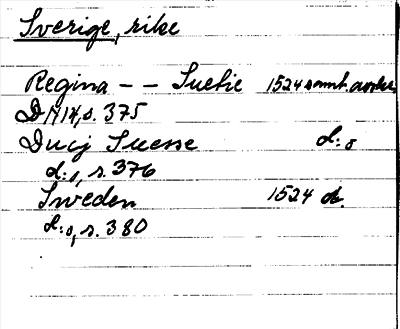 Sverige, rike
Regina - - Suetie 1524 samt.
DN 14, s. 375
Ducij Suesse d:o
d:o, s. 376
Sweden 1524 d.
d:o, s. 380